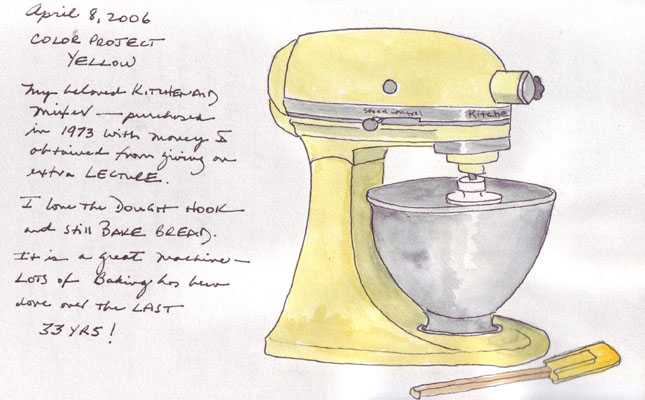 April 8, 2006
COLOR PROJECT
YELLOW
My beloved KITCHENAID
mixer — purchased
in 1973 with money I
obtained from giving an
extra LECTURE.
I love the DOUGH HOOK
and still BAKE BREAD.
It is a great machine —
LOTS of Baking has been
done over the LAST
33 YRS!
Speed Control
Kitche